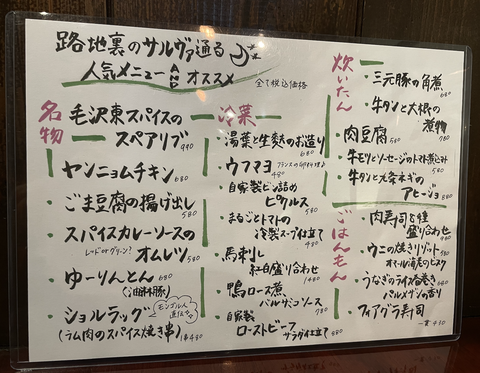 路地裏のサルヴァ通る
人気メニュー AND オススメ
全て税込価格
名物
毛沢東スパイスの
スペアリブ 990
ヤンニョムチキン 680
・ごま豆腐の揚げ出し 580
・スパイスカレーソースの
レッドorグリーン? オムレツ 580
・ゆーりんとん 680
(油淋豚)
・ショルラッグ
モンゴル人直伝
(ラム肉のスパイス焼き串) 1本430
冷菜
・湯葉と生麩のお造り 680
・ウフマヨ 480
・自家製ビン詰め
ピクルス 580
・まるごとトマトの
冷製スープ仕立て 480
・馬刺し
紅白盛り合わせ 1480
・鴨ロース煮
バルサミコソース 780
・自家製
ローストビーフ
サラダ仕立て 880
炊いたん
・三元豚の角煮 680
・牛タンと大根の
煮物 780
・肉豆腐 580
・牛モツとソーセージのトマト煮込み 580
・牛タンと九条ネギの
アヒージョ 880
ごはんもん
・肉寿司2種
盛り合わせ 980
・ウニの焼きリゾット 580
オマール海老のビスク
・うなぎのライス春巻き 680
パルメザンの香り
・フォアグラ寿司
一貫430